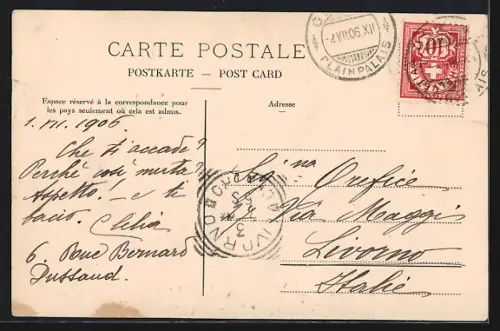 CARTE POSTALE
POSTKARTE — POST CARD
Espace réservé à la correspondance pour
les pays seulement où cela est admis.
Adresse
1. VII. 1906.
Che ti accade?
Perché così muta?
Aspetto! — e ti
bacio. Clelia
6. Rue Bernard
Dussaud.
Sig.na Orefice
Via Maggi
Livorno
Italie
PLAINPALAIS
LIVORNO
HELVETIA
10